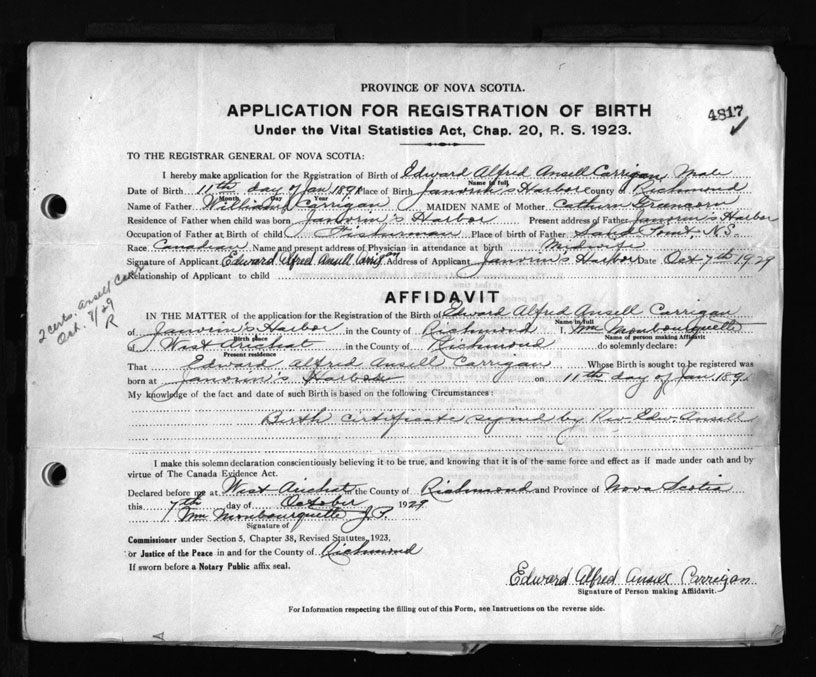 PROVINCE OF NOVA SCOTIA.
APPLICATION FOR REGISTRATION OF BIRTH
4817
Under the Vital Statistics Act, Chap. 20, R. S. 1923.
TO THE REGISTRAR GENERAL OF NOVA SCOTIA:
I hereby make application for the Registration of Birth of Edward Alfred Ansell Carrigan, Male
Name in full
Date of Birth 11th day of Jan 189 Place of Birth Janvrin's Harbor County of Richmond
Month Day Year
Name of Father William Carrigan MAIDEN NAME of Mother
Residence of Father when child was born Janvrin's Harbor Present address of Father Janvrin's Harbor
Occupation of Father at Birth of child Fisherman Place of birth of Father Point, N.S.
Race Canadian Name and present address of Physician in attendance at birth Midwife
Signature of Applicant Edward Alfred Ansell Carrigan Address of Applicant Janvrin's Harbor Date Oct 7th 1929
Relationship of Applicant to child
2 certs. Ansell
Oct. 9/29
R
AFFIDAVIT
IN THE MATTER of the application for the Registration of the Birth of Edward Alfred Ansell Carrigan
Name in full
of Janvrin's Harbor in the County of Richmond I, Wm Monbourquette
Birth place Name of person making Affidavit
of West Arichat in the County of Richmond do solemnly declare:
Present residence
That Edward Alfred Ansell Carrigan Whose Birth is sought to be registered was
born at Janvrin's Harbor on 11th day of Jan 189
My knowledge of the fact and date of such Birth is based on the following Circumstances:
Birth certificate signed by Rev Edw Ansell
I make this solemn declaration conscientiously believing it to be true, and knowing that it is of the same force and effect as if made under oath and by
virtue of The Canada Evidence Act.
Declared before me at West Arichat in the County of Richmond and Province of Nova Scotia
this 7th day of October 1929
Wm Monbourquette J.P.
Signature of
Commissioner under Section 5, Chapter 38, Revised Statutes, 1923,
or Justice of the Peace in and for the County of Richmond
If sworn before a Notary Public affix seal.
Edward Alfred Ansell Carrigan
Signature of Person making Affidavit.
For Information respecting the filling out of this Form, see Instructions on the reverse side.